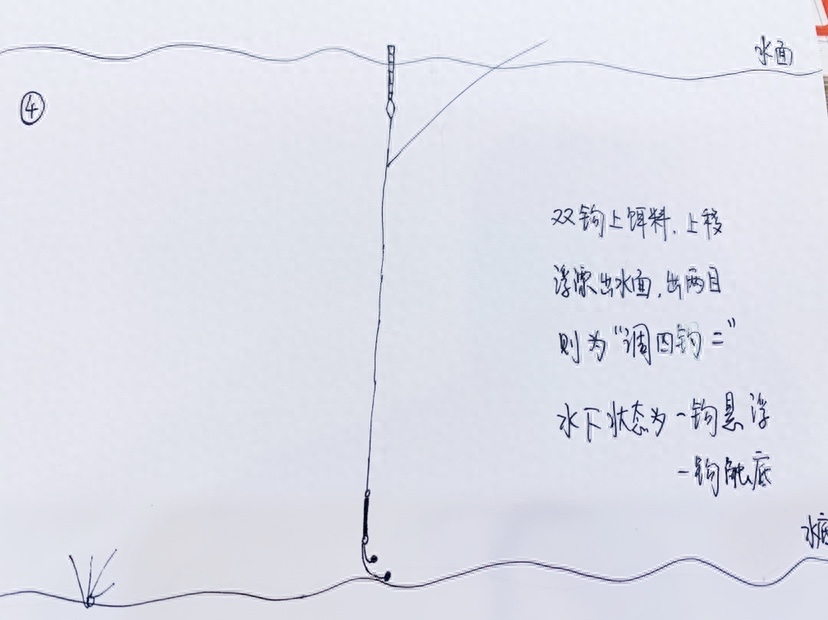 水面
④
双钩上饵料，上移
浮漂出水面，出两目
则为“调四钓二”
水下状态为一钩悬浮
一钩触底
水底